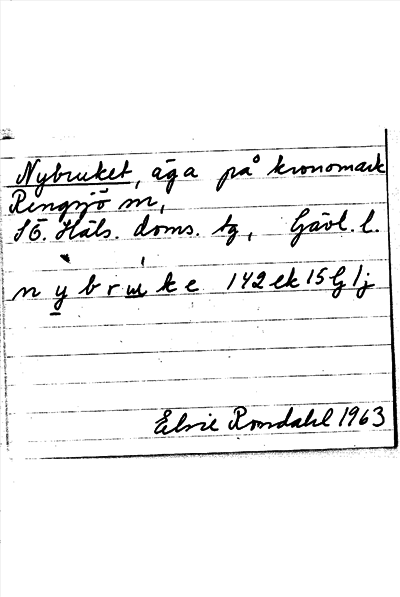 Nybruket, äga på kronomark
Rengsjö sn,
SÖ. Häls. doms. tg, Gävl. l.
nybruke 142 ek 15 G 1j
Elsie Romdahl 1963